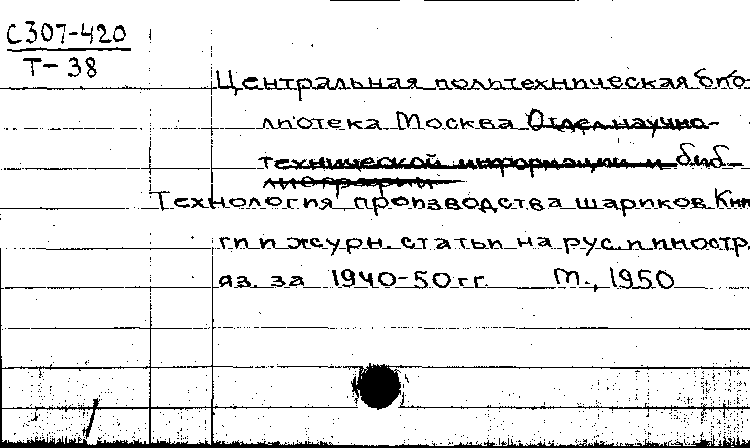 С307-420
Т-38
Центральная политехническая библ-
лиотека Москва Отдел научно-
технической информации и биб-
лиографии
Технология производства шариков. Кни
ги и журн. статьи на рус. и иностр.
яз. за 1940-50 гг. М., 1950